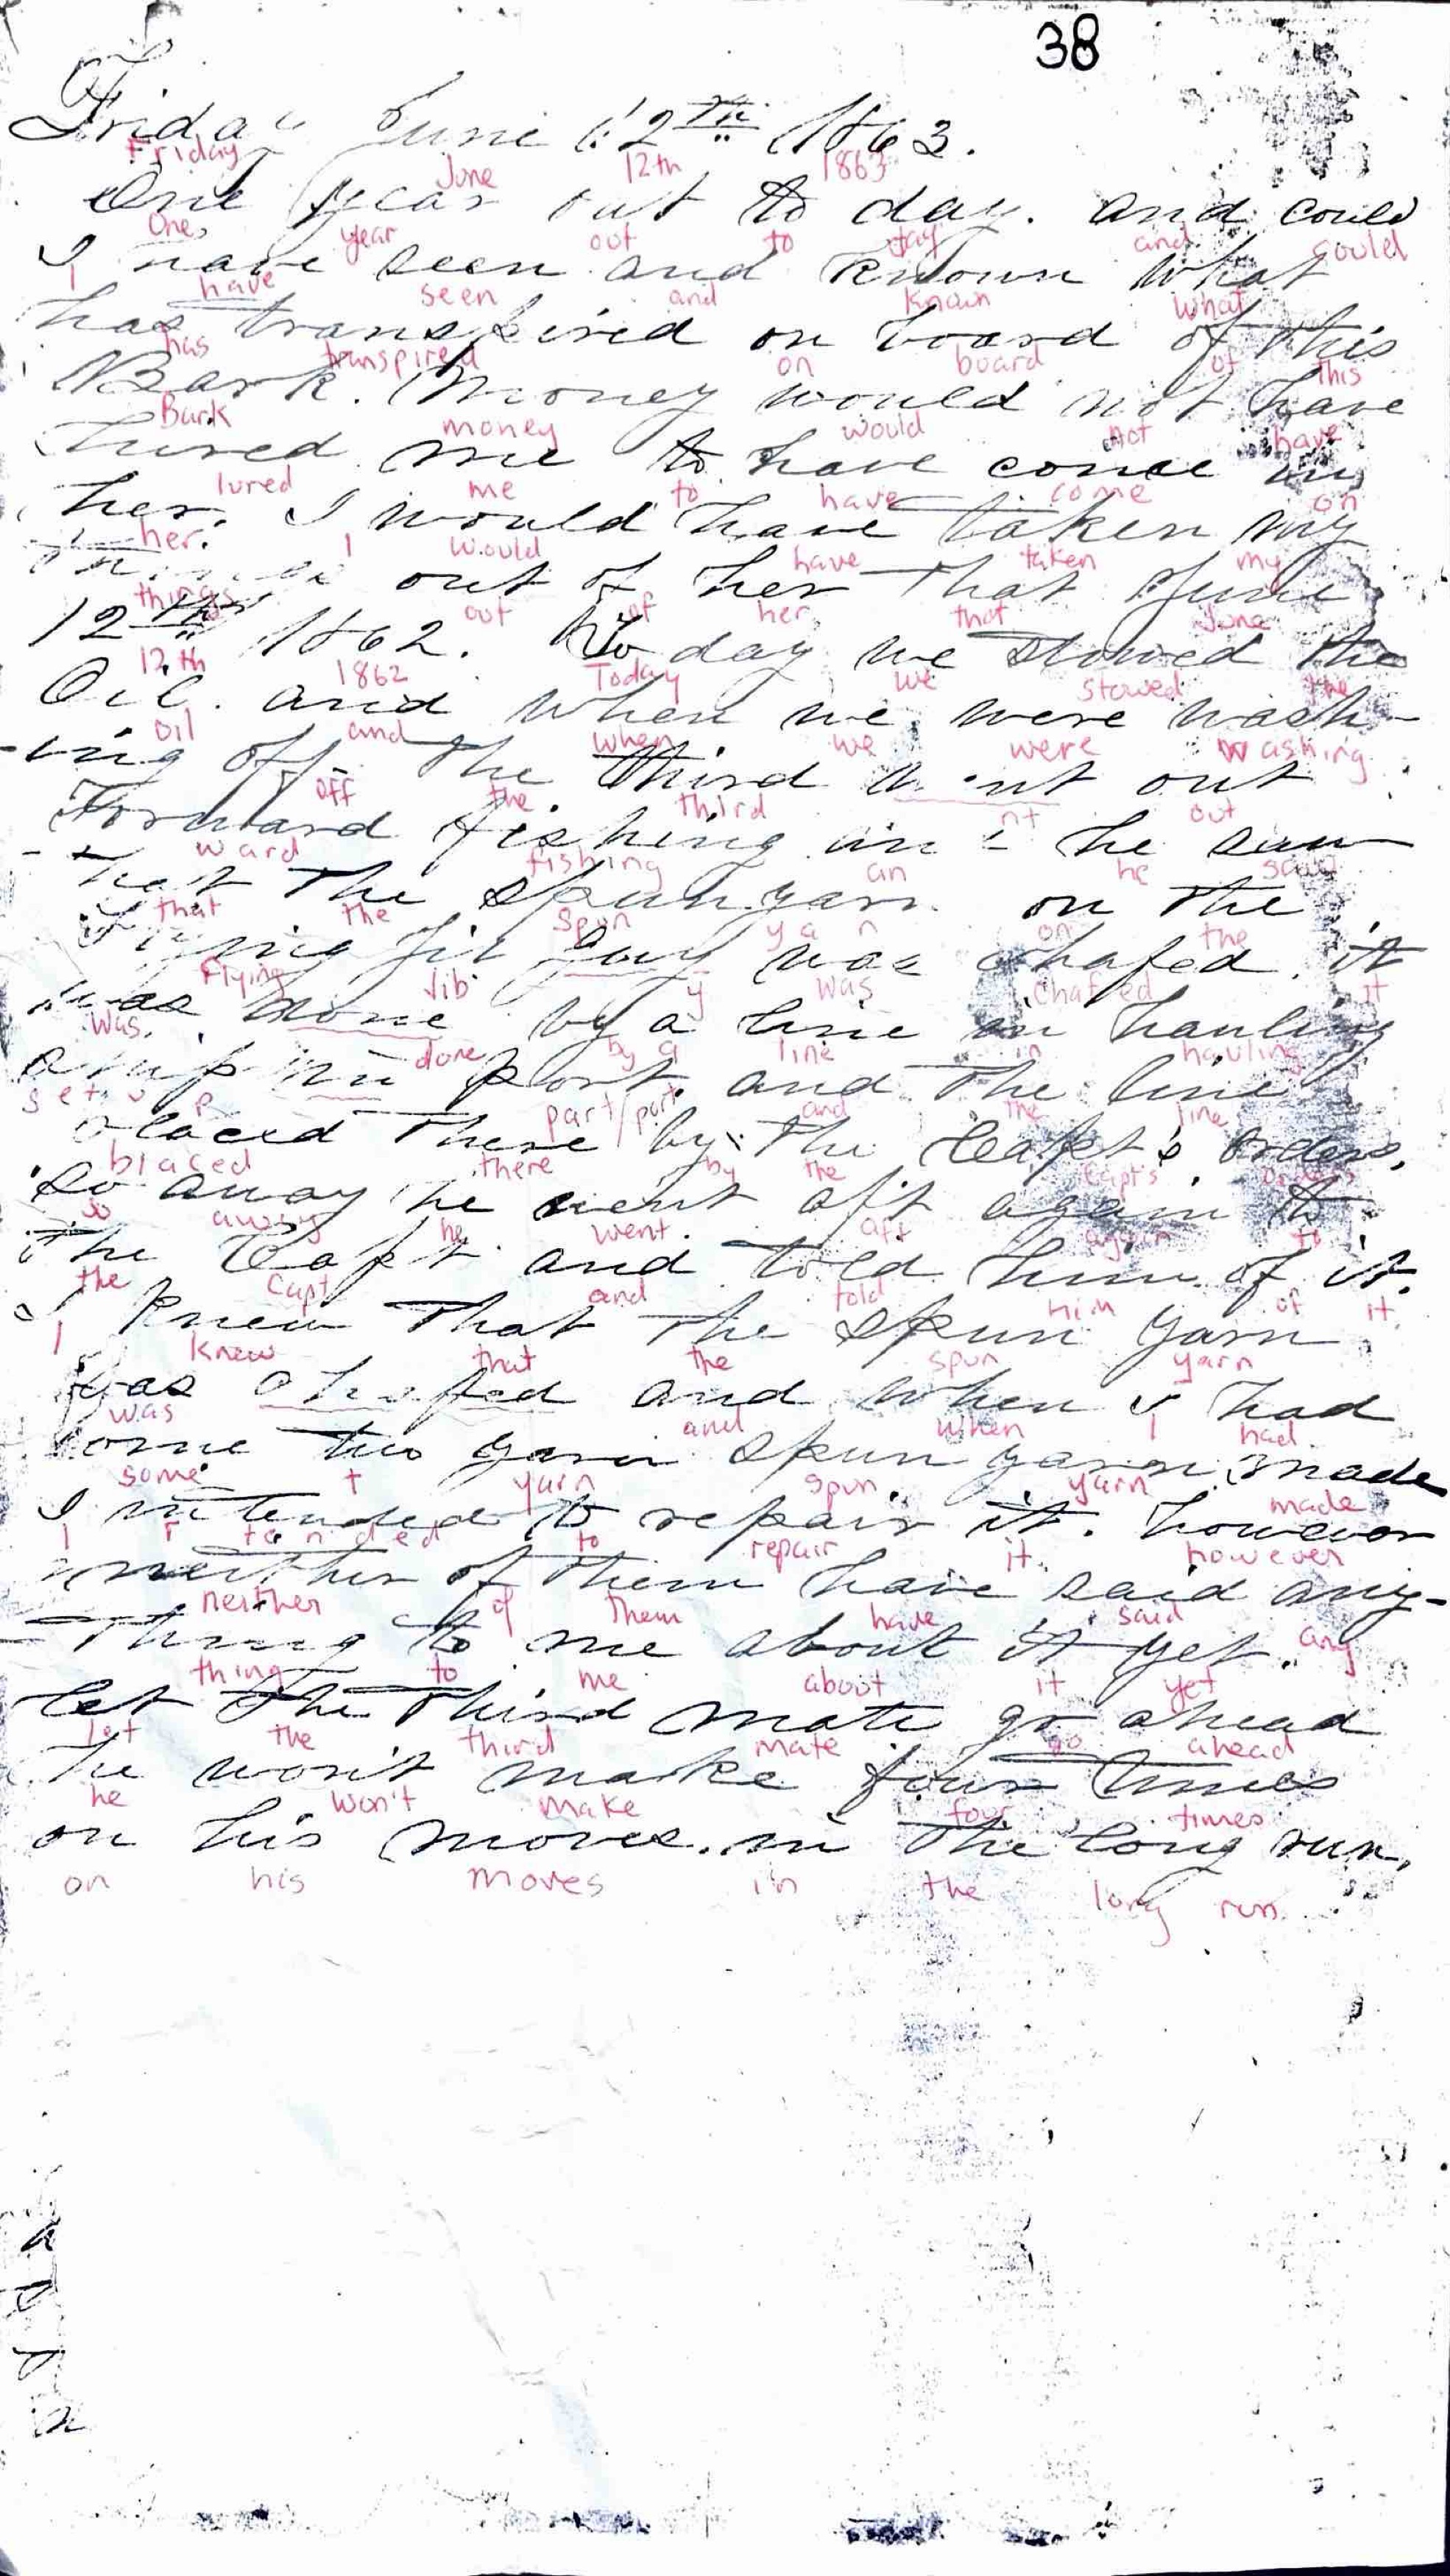 38
Friday June 12th 1863.
Friday June 12th 1863
One year out to day. and could
One year out to day and could
I have seen and known what
I have seen and known what
has transpired on board of this
has transpired on board of this
Bark. Money would not have
Bark money would not have
hired me to have come in
lured me to have come on
her. I would have taken my
her. I would have taken my
things out of her that June
things out of her that June
12th 1862. To day we stowed the
12th 1862 Today we stowed the
Oil. and when we were wash-
oil and when we were washing
-ing off the third went out
off the third nt out
Forward fishing and he saw
ward fishing an he saw
that the spun yarn on the
that the spun ya n on the
Flying jib guy was chafed. it
Flying Jib y was chaffed it
was done by a line in hauling
was done by a line in hauling
port. and the line
set u p part/port and the line
placed there by the Capt's orders.
blaced there by the Capt's orders
so away he went aft again to
so away he went aft again to
the Capt and told him of it.
the Capt and told him of it
I knew that the spun yarn
I knew that the spun yarn
was chafed and when I had
was and when I had
some two yarn spun yarn made
some t yarn spun yarn made
I intended to repair it. however
I tended to repair it however
neither of them have said any-
neither of them have said any
-thing to me about it yet.
thing to me about it yet
let the third mate go ahead
let the third mate go ahead
he won't make four times
he won't make four times
on his moves. in the long run.
on his moves in the long run